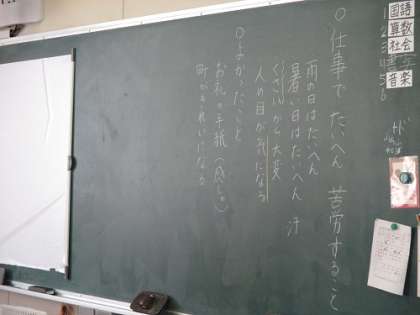 ○仕事でたいへん 苦労すること
雨の日はたいへん
暑い日はたいへん 汗
くさいから大変
人の目が気になる
○よかったこと
お礼の手紙（感しゃ）
町がきれいになる
国語
算数
社会
音楽
1
2
3
4
5
6